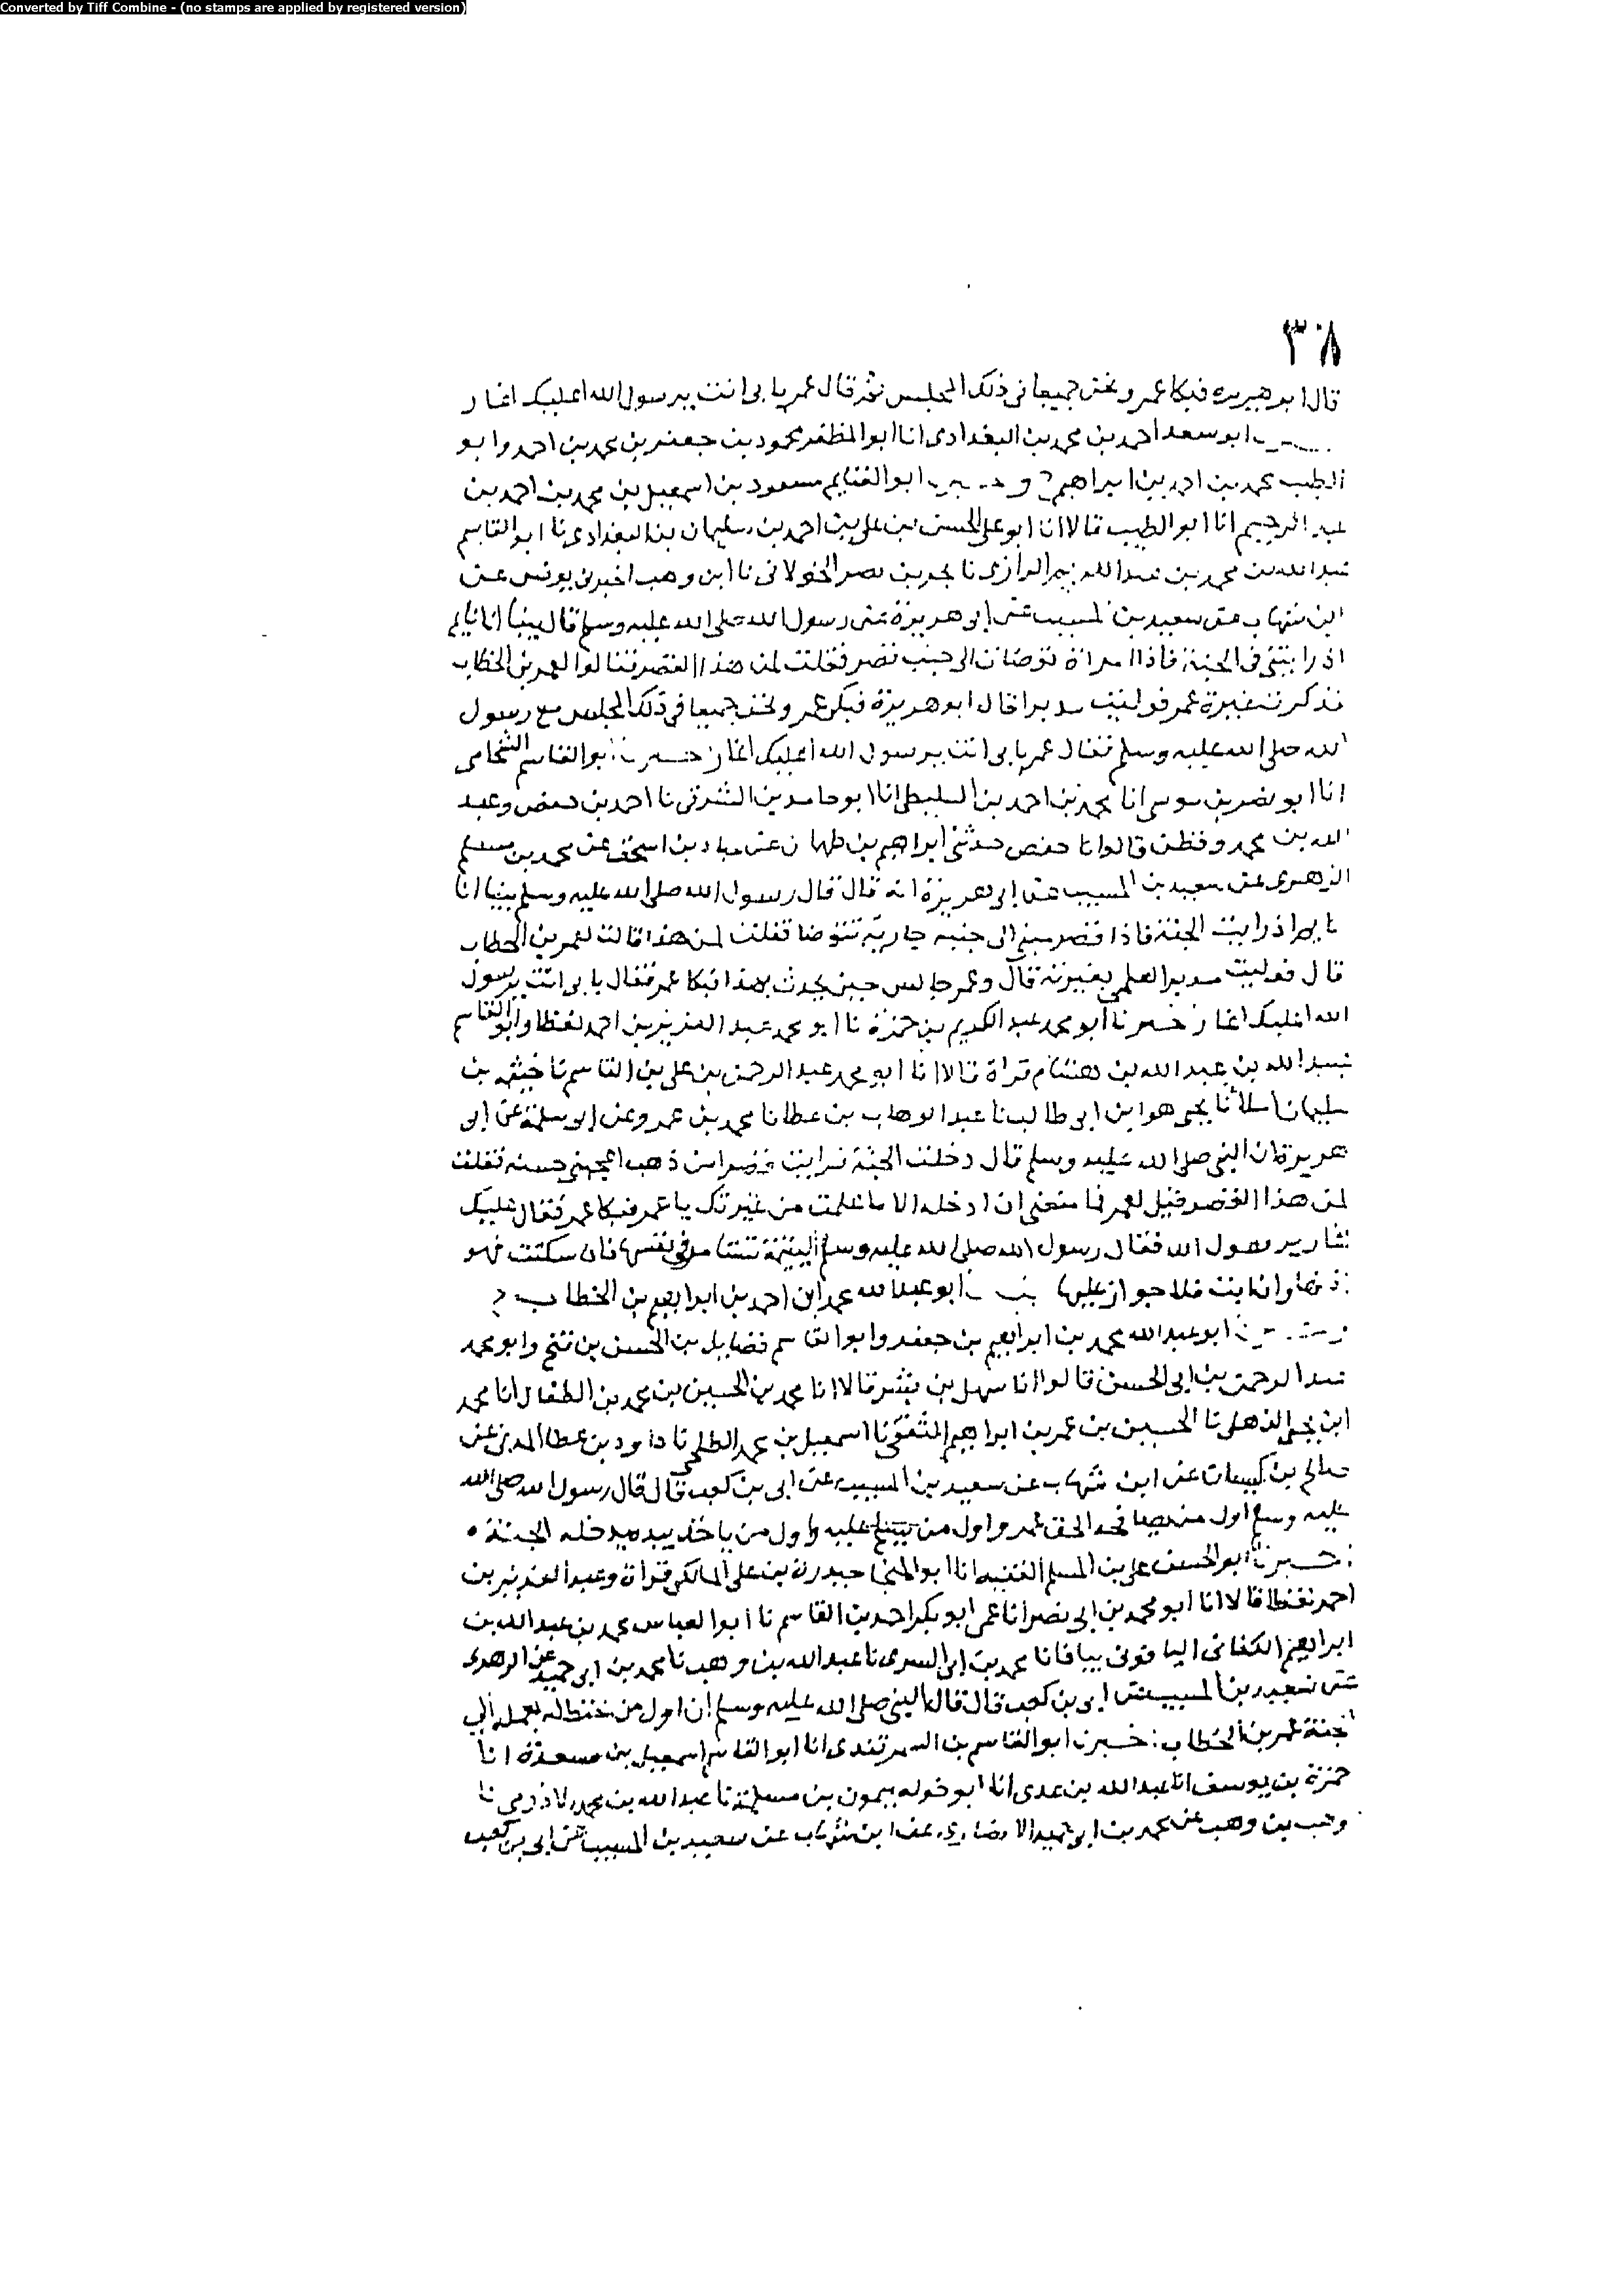 Converted by Tiff Combine - (no stamps are applied by registered version)
٣٠٨
قال ابو هريره فبكا عمر ونحن جميعا فى ذلك المجلس ثم قال عمر بابى انت يرسول الله اعليك اغار
ابو سعد احمد بن محمد بن البغدادى انا ابو المظفر محمود بن جعفر بن محمد بن احمد وابو
الطيب محمد بن احمد بن ابراهيم ح و ابو الغنايم مسعود بن اسمعيل بن محمد بن احمد بن
عبد الرحيم انا ابو الطيب قالا انا ابو على الحسن بن على بن احمد بن سليمان بن البغدادى نا ابو القاسم
عبد الله بن محمد بن عبد الله الرازى نا بحر بن نصر الخولانى نا ابن وهب اخبرنى يونس عن
ابن شهاب عن سعيد بن المسيب عن ابى هريرة عن رسول الله صلى الله عليه وسلم قال بينا انا نايم
اذ رايتنى فى الجنة فاذا امراة توضات الى جنب قصر فقلت لمن هذا القصر فقالوا لعمر بن الخطاب
فذكرت غيرة عمر فوليت مدبرا قال ابو هريرة فبكى عمر ونحن جميعا فى ذلك المجلس مع رسول
الله صلى الله عليه وسلم فقال عمر بابى انت يرسول الله اعليك اغار خبرنا ابو القاسم الشحامى
انا ابو نصر بن موسى انا محمد بن احمد بن السليطى انا ابو حامد بن الشرقى نا احمد بن حفص وعبد
الله بن محمد وقطن قالوا نا حفص حدثنى ابراهيم بن طهمان عن عباد بن اسحق عن محمد بن مسلم
الزهرى عن سعيد بن المسيب عن ابى هريرة انه قال قال رسول الله صلى الله عليه وسلم بينا انا
نايم اذ رايت الجنة فاذا قصر مبنى الى جنبه جارية تتوضا فقلت لمن هذا قالت لعمر بن الخطاب
قال فوليت مدبرا لعلمى بغيرته قال وعمر جالس حين يحدث بهذا فبكا عمر فقال بابى انت يرسول
الله اعليك اغار خبرنا ابو محمد عبد الكريم بن حمزة نا ابو محمد عبد العزيز بن احمد لفظا وابو القاسم
عبيد الله بن عبد الله بن هشام قراة قالا انا ابو محمد عبد الرحمن بن على بن القاسم نا خيثمه بن
سليمان املا نا يحيى هو ابن ابى طالب نا عبد الوهاب بن عطا نا محمد بن عمرو عن ابى سلمة عن ابى
هريرة ان النبى صلى الله عليه وسلم قال دخلت الجنة فرايت قصرا من ذهب اعجبنى حسنه فقلت
لمن هذا القصر فقيل لعمر فما منعنى ان ادخله الا ما علمت من غيرتك يا عمر فبكا عمر فقال عليك
اغار يرسول الله فقال رسول الله صلى الله عليه وسلم اليتيمة تستامر فى نفسها فان سكتت فهو
اذنها وان ابت فلا جواز عليها ابو عبد الله محمد ابن احمد بن ابراهيم بن الخطاب ح
ابو عبد الله محمد بن ابراهيم بن جعفر وابو القاسم فضايل بن الحسن بن فتح وابو محمد
عبد الرحمن بن ابى الحسن قالوا انا سهل بن بشر قالا انا محمد بن الحسين بن محمد بن الطفال انا محمد
ابن يحيى الذهلى نا الحسين بن عمر بن ابراهيم الثقفى نا اسمعيل بن محمد الطلحى نا داود بن عطا المدنى عن
صالح بن كيسان عن ابن شهاب عن سعيد بن المسيب عن ابى بن كعب قال قال رسول الله صلى الله
عليه وسلم اول من يصافحه الحق عمر واول من يسلم عليه واول من ياخذ بيده يدخله الجنة
خبرنا ابو الحسن على بن المسلم الفقيه انا ابو المنجا حيدرة بن على المالكى قراة وعبد العزيز بن
احمد لفظا قالا انا ابو محمد بن ابى نصر انا عمى ابو بكر احمد بن القاسم نا ابو العباس محمد بن عبد الله بن
ابراهيم الكنانى اليافونى بيافا نا محمد بن ابى السرى نا عبد الله بن وهب نا محمد بن ابى حميد عن الزهرى
عن سعيد بن المسيب عن ابى بن كعب قال قال النبى صلى الله عليه وسلم ان اول من بعمله الى
الجنة عمر بن الخطاب خبرنا ابو القاسم بن السمرقندى انا ابو القاسم اسمعيل بن مسعدة انا
حمزة بن يوسف انا عبد الله بن عدى انا ابو خوله ميمون بن مسلمة نا عبد الله بن محمد الاذرمى نا
وهب بن وهب عن محمد بن ابى حميد الانصارى عن ابن شهاب عن سعيد بن المسيب عن ابى بن كعب